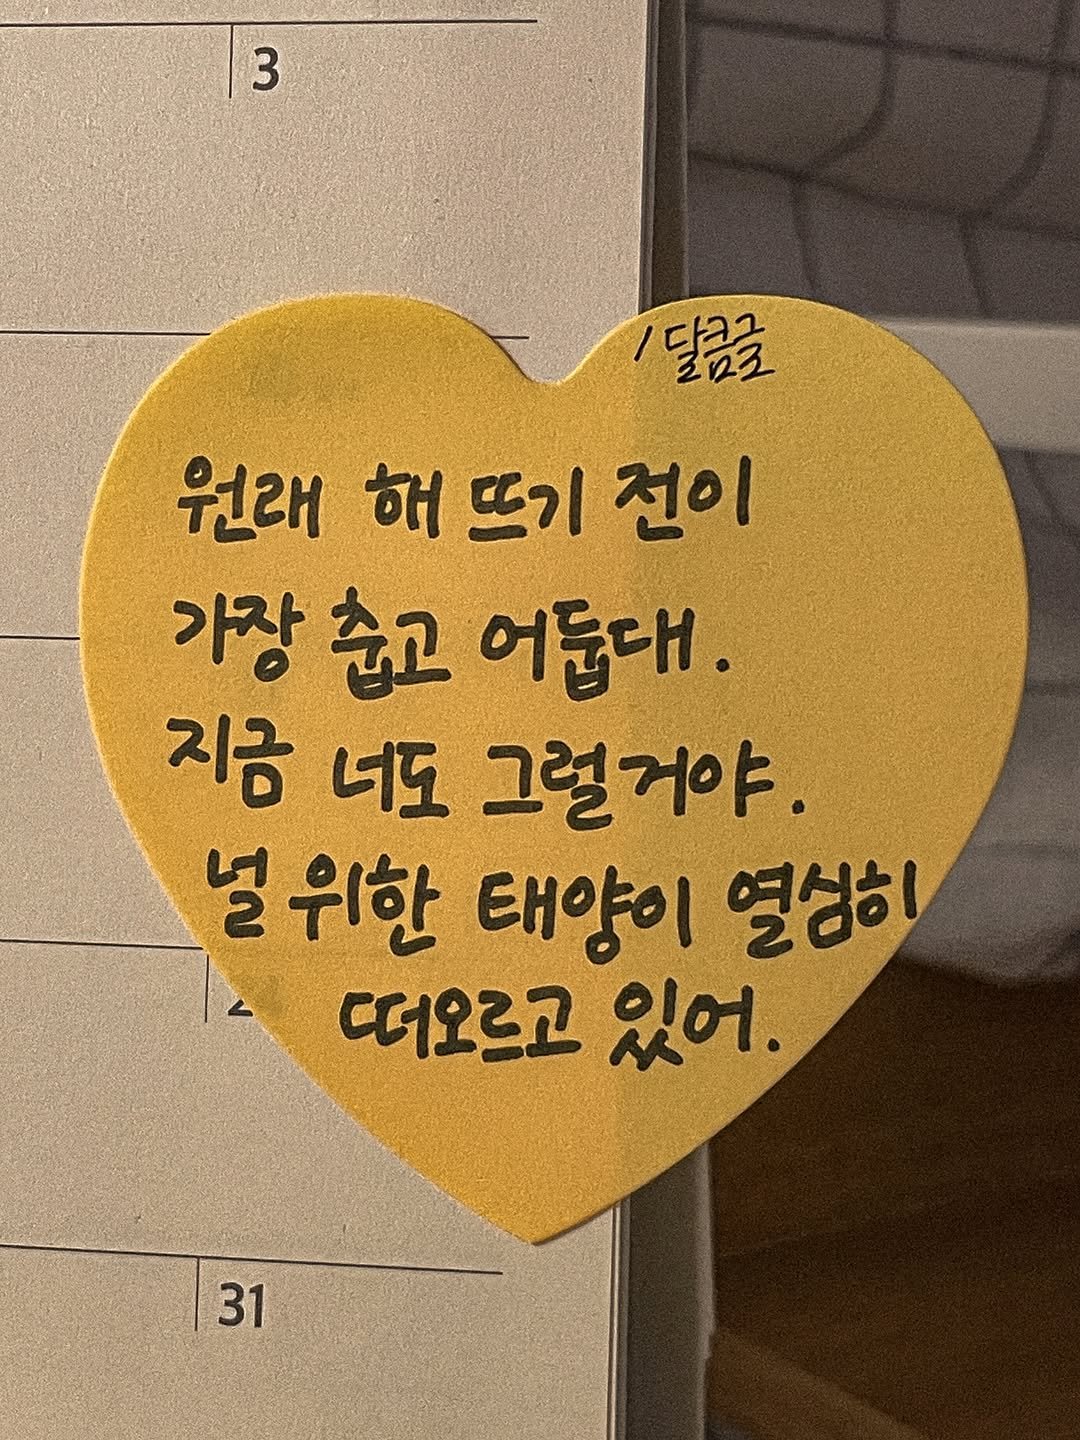 3
/달큼글
원래 해 뜨기 전이
가장 춥고 어둡대.
지금 너도 그럴거야.
널 위한 태양이 열심히
떠오르고 있어.
31